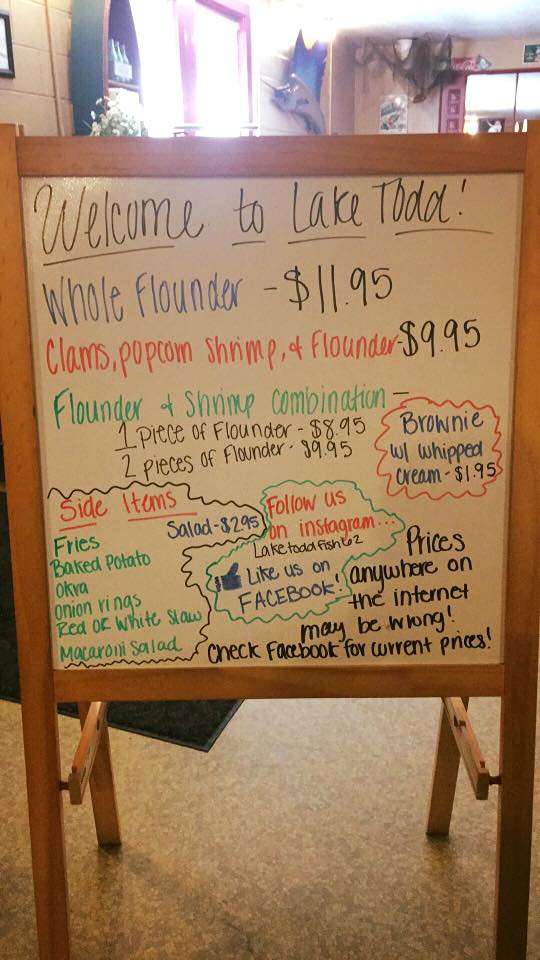 Welcome to Lake Todd!
Whole Flounder - $11.95
Clams, popcorn shrimp, & Flounder-$9.95
Flounder & Shrimp combination -
1 piece of Flounder - $8.95
2 pieces of Flounder - $9.95
Brownie
w/ whipped
cream - $1.95
Side Items
Salad - $2.95
Fries
Baked Potato
Okra
Onion rings
Red or White Slaw
Macaroni Salad
Follow us
on instagram...
Laketoddfish62
Like us on
FACEBOOK!
Prices
anywhere on
the internet
may be wrong!
Check Facebook for current prices!